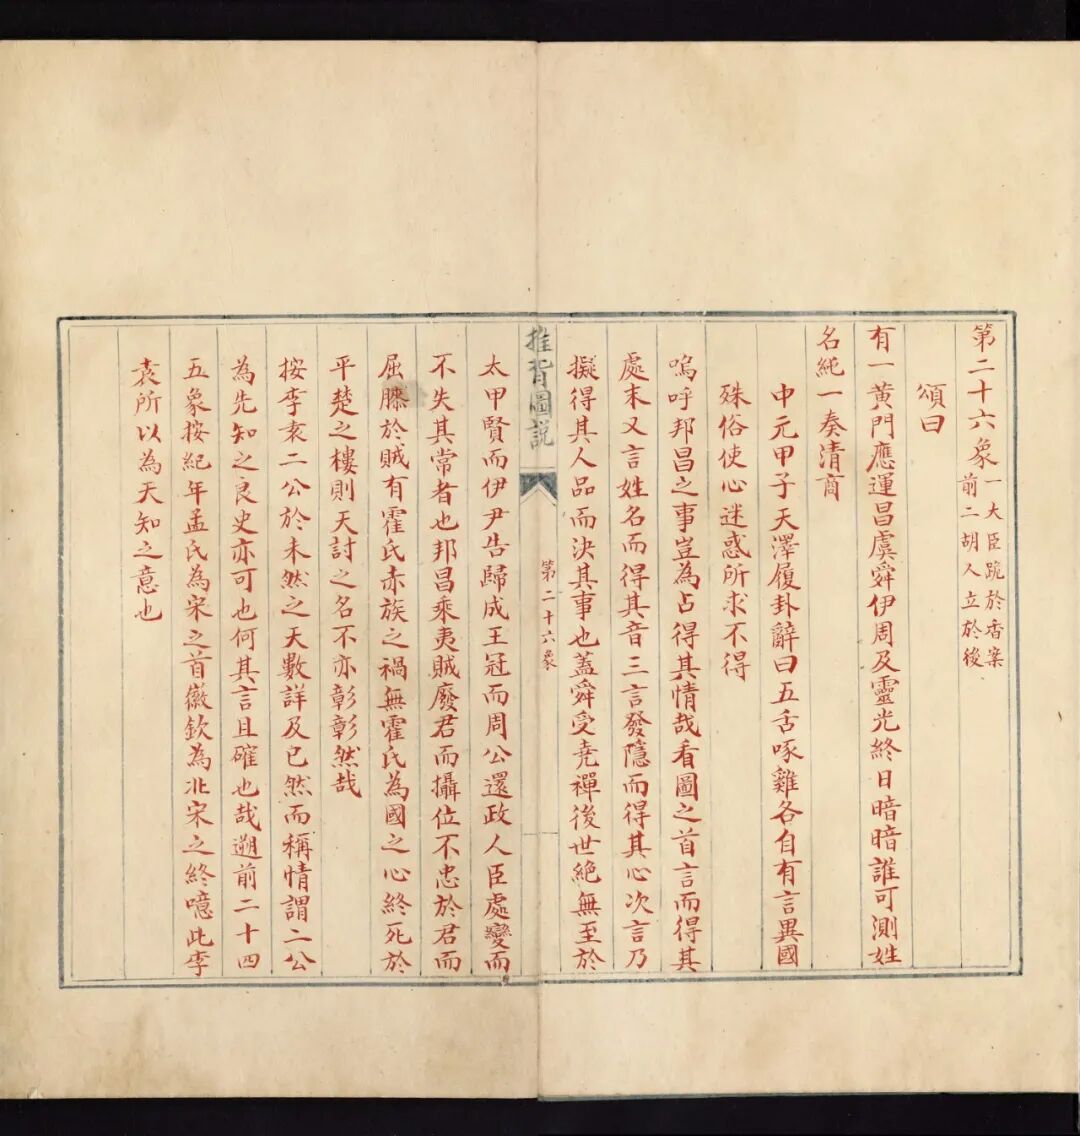 第二十六象
一大臣跪於香案
前二胡人立於後
頌曰
有一黃門應運昌虞舜伊周及靈光終日暗暗誰可測姓
名純一奏清商
中元甲子天澤履卦辭曰五舌啄雞各自有言異國
殊俗使心迷惑所求不得
嗚呼邦昌之事豈為占得其情哉看圖之首言而得其
處末又言姓名而得其音三言發隱而得其心次言乃
擬得其人品而決其事也蓋舜受堯禪後世絕無至於
推背圖說
第二十六象
太甲賢而伊尹告歸成王冠而周公還政人臣處變而
不失其常者也邦昌乘夷賊廢君而攝位不忠於君而
屈膝於賊有霍氏赤族之禍無霍氏為國之心終死於
平楚之樓則天討之名不亦彰彰然哉
按李袁二公於未然之天數詳及已然而稱情謂二公
為先知之良史亦可也何其言且確也哉遡前二十四
五象按紀年孟氏為宋之首徽欽為北宋之終噫此李
袁所以為天知之意也